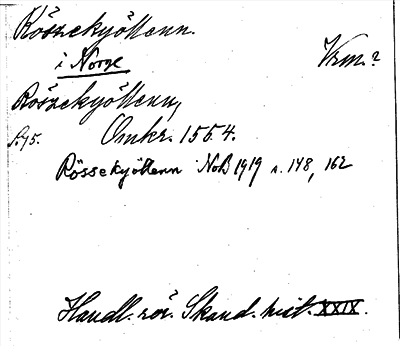 Röszekyöttenn.
i Norge
Vrm.?
Röszekyöttenn,
S. 95. Omkr. 1554.
Rössekyöttenn NoB 1919 s. 148, 162
Handl. rör. Skand. hist. XXIX.